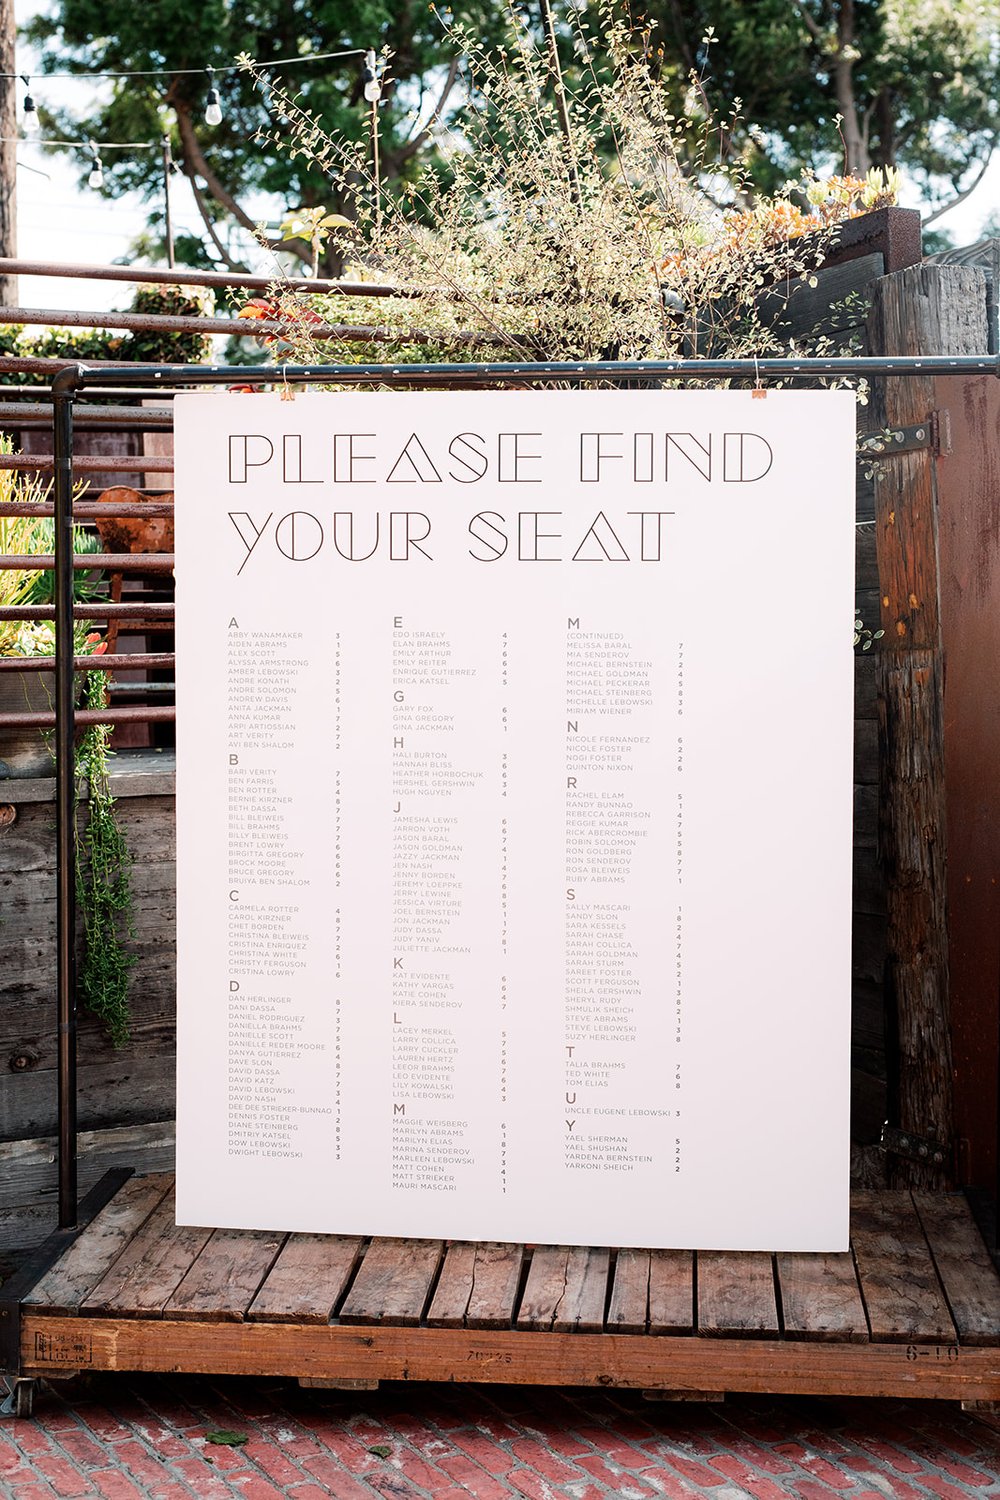 PLEASE FIND
YOUR SEAT
A
ABBY WANAMAKER 3
AIDEN ABRAMS 1
ALEX SCOTT 5
ALYSSA ARMSTRONG 6
AMBER LEBOWSKI 3
ANDRE KONATH 2
ANDRE SOLOMON 5
ANDREW DAVIS 6
ANITA JACKMAN 1
ANNA KUMAR 7
ARPI ARTIOSSIAN 2
ART VERITY 7
AVI BEN SHALOM 2
B
BARI VERITY 7
BEN FARRIS 5
BEN ROTTER 4
BERNIE KIRZNER 8
BETH DASSA 7
BILL BLEIWEIS 7
BILL BRAHMS 7
BILLY BLEIWEIS 7
BRENT LOWRY 6
BIRGITTA GREGORY 6
BROCK MOORE 6
BRUCE GREGORY 6
BRUIYA BEN SHALOM 2
C
CARMELA ROTTER 4
CAROL KIRZNER 8
CHET BORDEN 7
CHRISTINA BLEIWEIS 7
CRISTINA ENRIQUEZ 2
CHRISTINA WHITE 6
CHRISTY FERGUSON 1
CRISTINA LOWRY 6
D
DAN HERLINGER 8
DANI DASSA 7
DANIEL RODRIGUEZ 3
DANIELLA BRAHMS 7
DANIELLE SCOTT 5
DANIELLE REDER MOORE 6
DANYA GUTIERREZ 4
DAVE SLON 8
DAVID DASSA 7
DAVID KATZ 7
DAVID LEBOWSKI 3
DAVID NASH 4
DEE DEE STRIEKER-BUNNAO 1
DENNIS FOSTER 2
DIANE STEINBERG 8
DMITRIY KATSEL 5
DOW LEBOWSKI 3
DWIGHT LEBOWSKI 3
E
EDO ISRAELY 4
ELAN BRAHMS 7
EMILY ARTHUR 6
EMILY REITER 6
ENRIQUE GUTIERREZ 4
ERICA KATSEL 5
G
GARY FOX 6
GINA GREGORY 6
GINA JACKMAN 1
H
HALI BURTON 3
HANNAH BLISS 6
HEATHER HORBOCHUK 6
HERSHEL GERSHWIN 3
HUGH NGUYEN 4
J
JAMESHA LEWIS 6
JARRON VOTH 6
JASON BARAL 7
JASON GOLDMAN 4
JAZZY JACKMAN 1
JEN NASH 4
JENNY BORDEN 7
JEREMY LOEPPKE 6
JERRY LEWINE 8
JESSICA VIRTURE 5
JOEL BERNSTEIN 1
JON JACKMAN 1
JUDY DASSA 7
JUDY YANIV 8
JULIETTE JACKMAN 1
K
KAT EVIDENTE 6
KATHY VARGAS 6
KATIE COHEN 4
KIERA SENDEROV 7
L
LACEY MERKEL 5
LARRY COLLICA 7
LARRY CUCKLER 5
LAUREN HERTZ 6
LEEOR BRAHMS 7
LEO EVIDENTE 6
LILY KOWALSKI 4
LISA LEBOWSKI 3
M
MAGGIE WEISBERG 6
MARILYN ABRAMS 1
MARILYN ELIAS 8
MARINA SENDEROV 7
MARLEEN LEBOWSKI 3
MATT COHEN 4
MATT STRIEKER 1
MAURI MASCARI 1
M
(CONTINUED)
MELISSA BARAL 7
MIA SENDEROV 7
MICHAEL BERNSTEIN 2
MICHAEL GOLDMAN 4
MICHAEL PECKERAR 5
MICHAEL STEINBERG 8
MICHELLE LEBOWSKI 3
MIRIAM WIENER 6
N
NICOLE FERNANDEZ 6
NICOLE FOSTER 2
NOGI FOSTER 2
QUINTON NIXON 6
R
RACHEL ELAM 5
RANDY BUNNAO 1
REBECCA GARRISON 4
REGGIE KUMAR 7
RICK ABERCROMBIE 5
ROBIN SOLOMON 5
RON GOLDBERG 8
RON SENDEROV 7
ROSA BLEIWEIS 7
RUBY ABRAMS 1
S
SALLY MASCARI 1
SANDY SLON 8
SARA KESSELS 2
SARAH CHASE 4
SARAH COLLICA 7
SARAH GOLDMAN 4
SARAH STURM 5
SAREET FOSTER 2
SCOTT FERGUSON 1
SHEILA GERSHWIN 3
SHERYL RUDY 8
SHMULIK SHEICH 2
STEVE ABRAMS 1
STEVE LEBOWSKI 3
SUZY HERLINGER 8
T
TALIA BRAHMS 7
TED WHITE 6
TOM ELIAS 8
U
UNCLE EUGENE LEBOWSKI 3
Y
YAEL SHERMAN 5
YAEL SHUSHAN 2
YARDENA BERNSTEIN 2
YARKONI SHEICH 2
70225
6-10